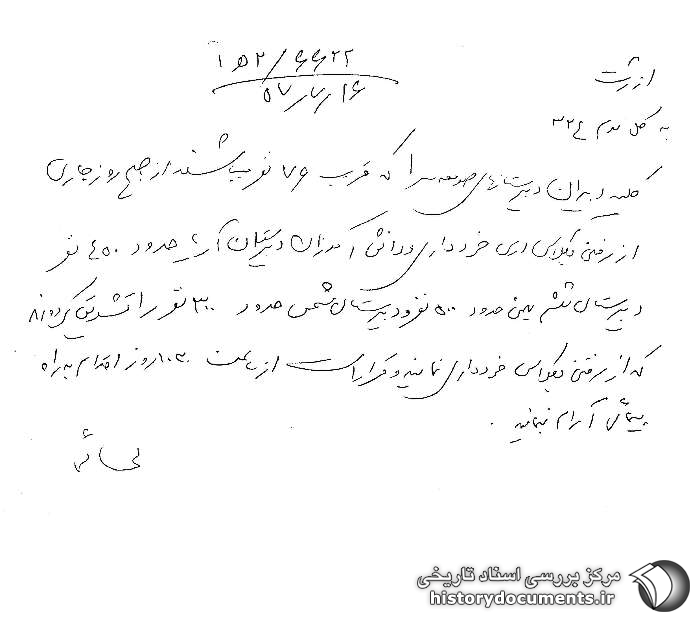 ۱۵۲/۶۶۲۲
۵۷/۷/۱۶
از رشت
به کل سوم ۳۲۴
کلیه دبیران دبیرستانهای صومعه سرا که قریب ۷۶ نفر میباشند از صبح روز جاری
از رفتن بکلاس درس خودداری و دانش آموزان دبیرستان آریا حدود ۴۵۰ نفر
دبیرستان ششم بهمن حدود ۵۰۰ نفر و دبیرستان شمس حدود ۳۰۰ نفر را تشویق کرده‌اند
که از رفتن بکلاس خودداری نمایند و قرار است از ساعت ۱۰۳۰ روز اقدام به راه
پیمائی آرام نمایند.
مرکز بررسی اسناد تاریخی
historydocuments.ir